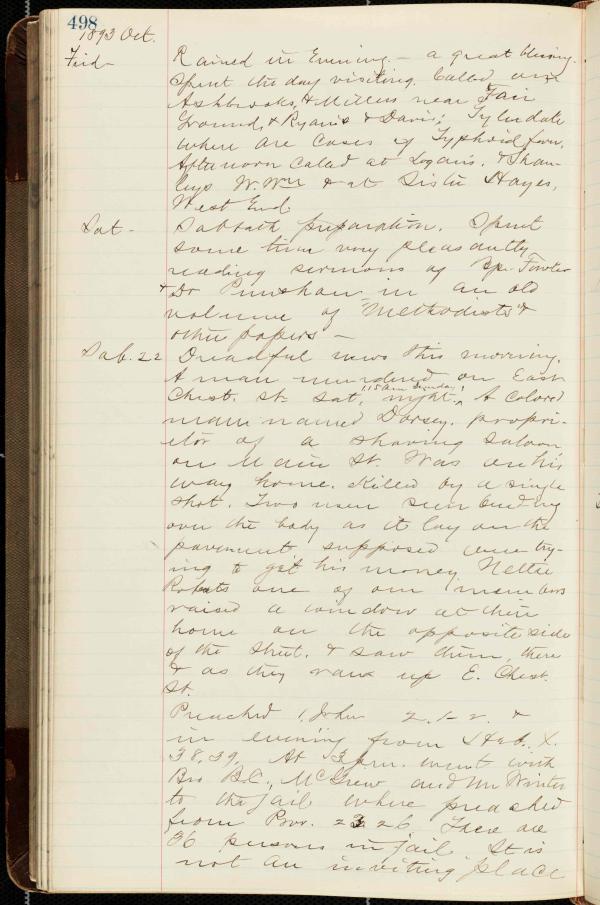 498
1893 Oct.
Frid- Rained in Evening. - a great blessing.
Spent the day visiting. Called on
Ashbrooks, & Millers near Fair
Ground, & Ryan's & Davis;
where are Cases of Typhoid fever.
Afternoon Called at Logans. &
W. Wm & at Sister Hayes,
West End.
Sat- Sabbath preparation. Spent
some time very pleasantly
reading sermons of Bp. Fowler
& Dr Punshon in an old
volume of "Methodists" &
other papers -
Sab. 22 Dreadful news this morning.
A man murdered on East
Chest. St. Sat. night. A Colored
man named Dorsey. propri-
etor of a shaving saloon
on Main St. Was on his
way home. Killed by a single
shot. Two men seen bending
over the body as it lay on the
pavement, supposed were try-
ing to get his money. Nellie
Roberts one of our members
raised a window at their
home on the opposite side
of the street. & saw them, there
& as they ran up E. Chest.
St.
Preached 1, John 2. 1-2. &
in evening from Heb. X.
38.39. At 3 pm. went with
Bro B.C. McGrew and Mr Winter
to the jail where preached
from Prov. 23 26 There are
36 persons in jail It is
not an inviting place